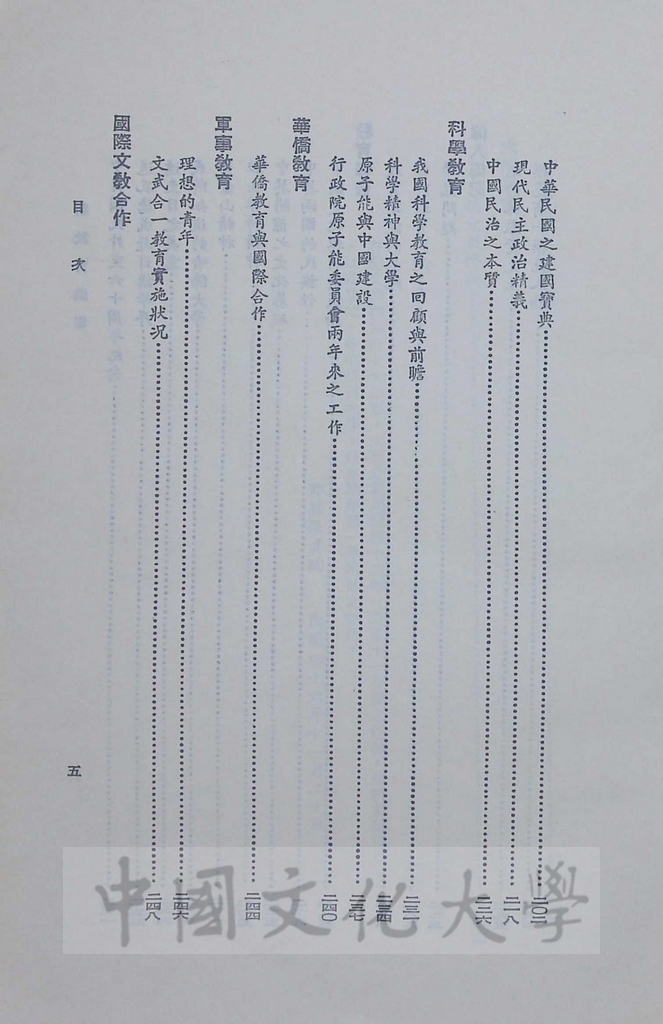 中華民國之建國寶典……二〇二
現代民主政治精義……二一八
中國民治之本質……二二六
科學教育
我國科學教育之回顧與前瞻……二三一
科學精神與大學……二三四
原子能與中國建設……二三七
行政院原子能委員會兩年來之工作……二四〇
華僑教育
華僑教育與國際合作……二四四
軍事教育
理想的青年……二四六
文武合一教育實施狀況……二四八
國際文教合作
目次
五
中國文化大學